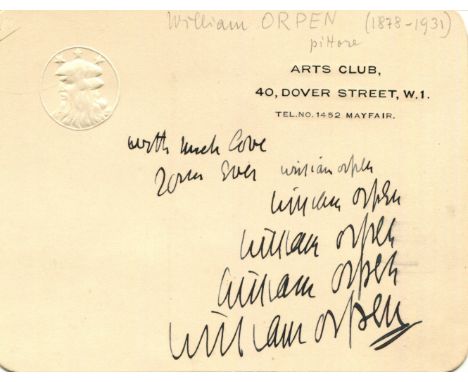 William ORPEN (1878-1931)
pittore
ARTS CLUB,
40, DOVER STREET, W.1.
TEL. NO. 1452 MAYFAIR.
with much love
Yours Ever William Orpen
William Orpen
William Orpen
William Orpen
William Orpen